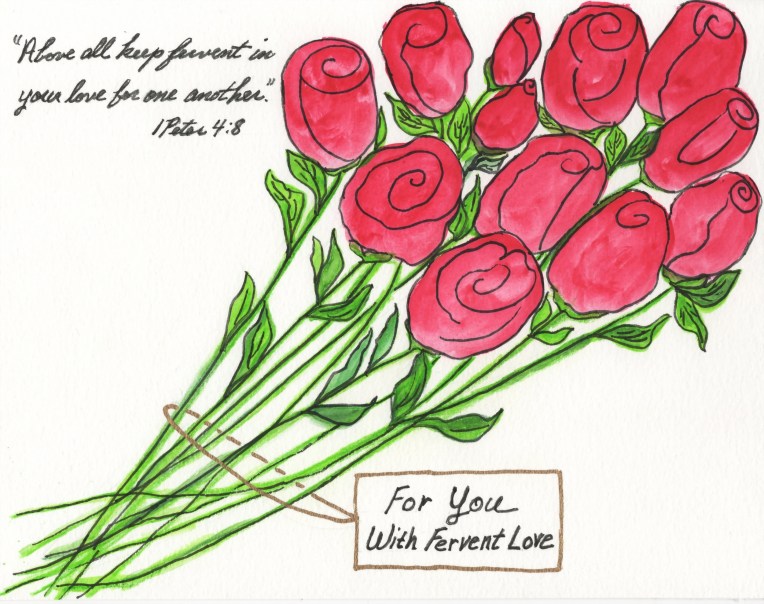 "Above all keep fervent in
your love for one another."
1 Peter 4:8
For You
With Fervent Love